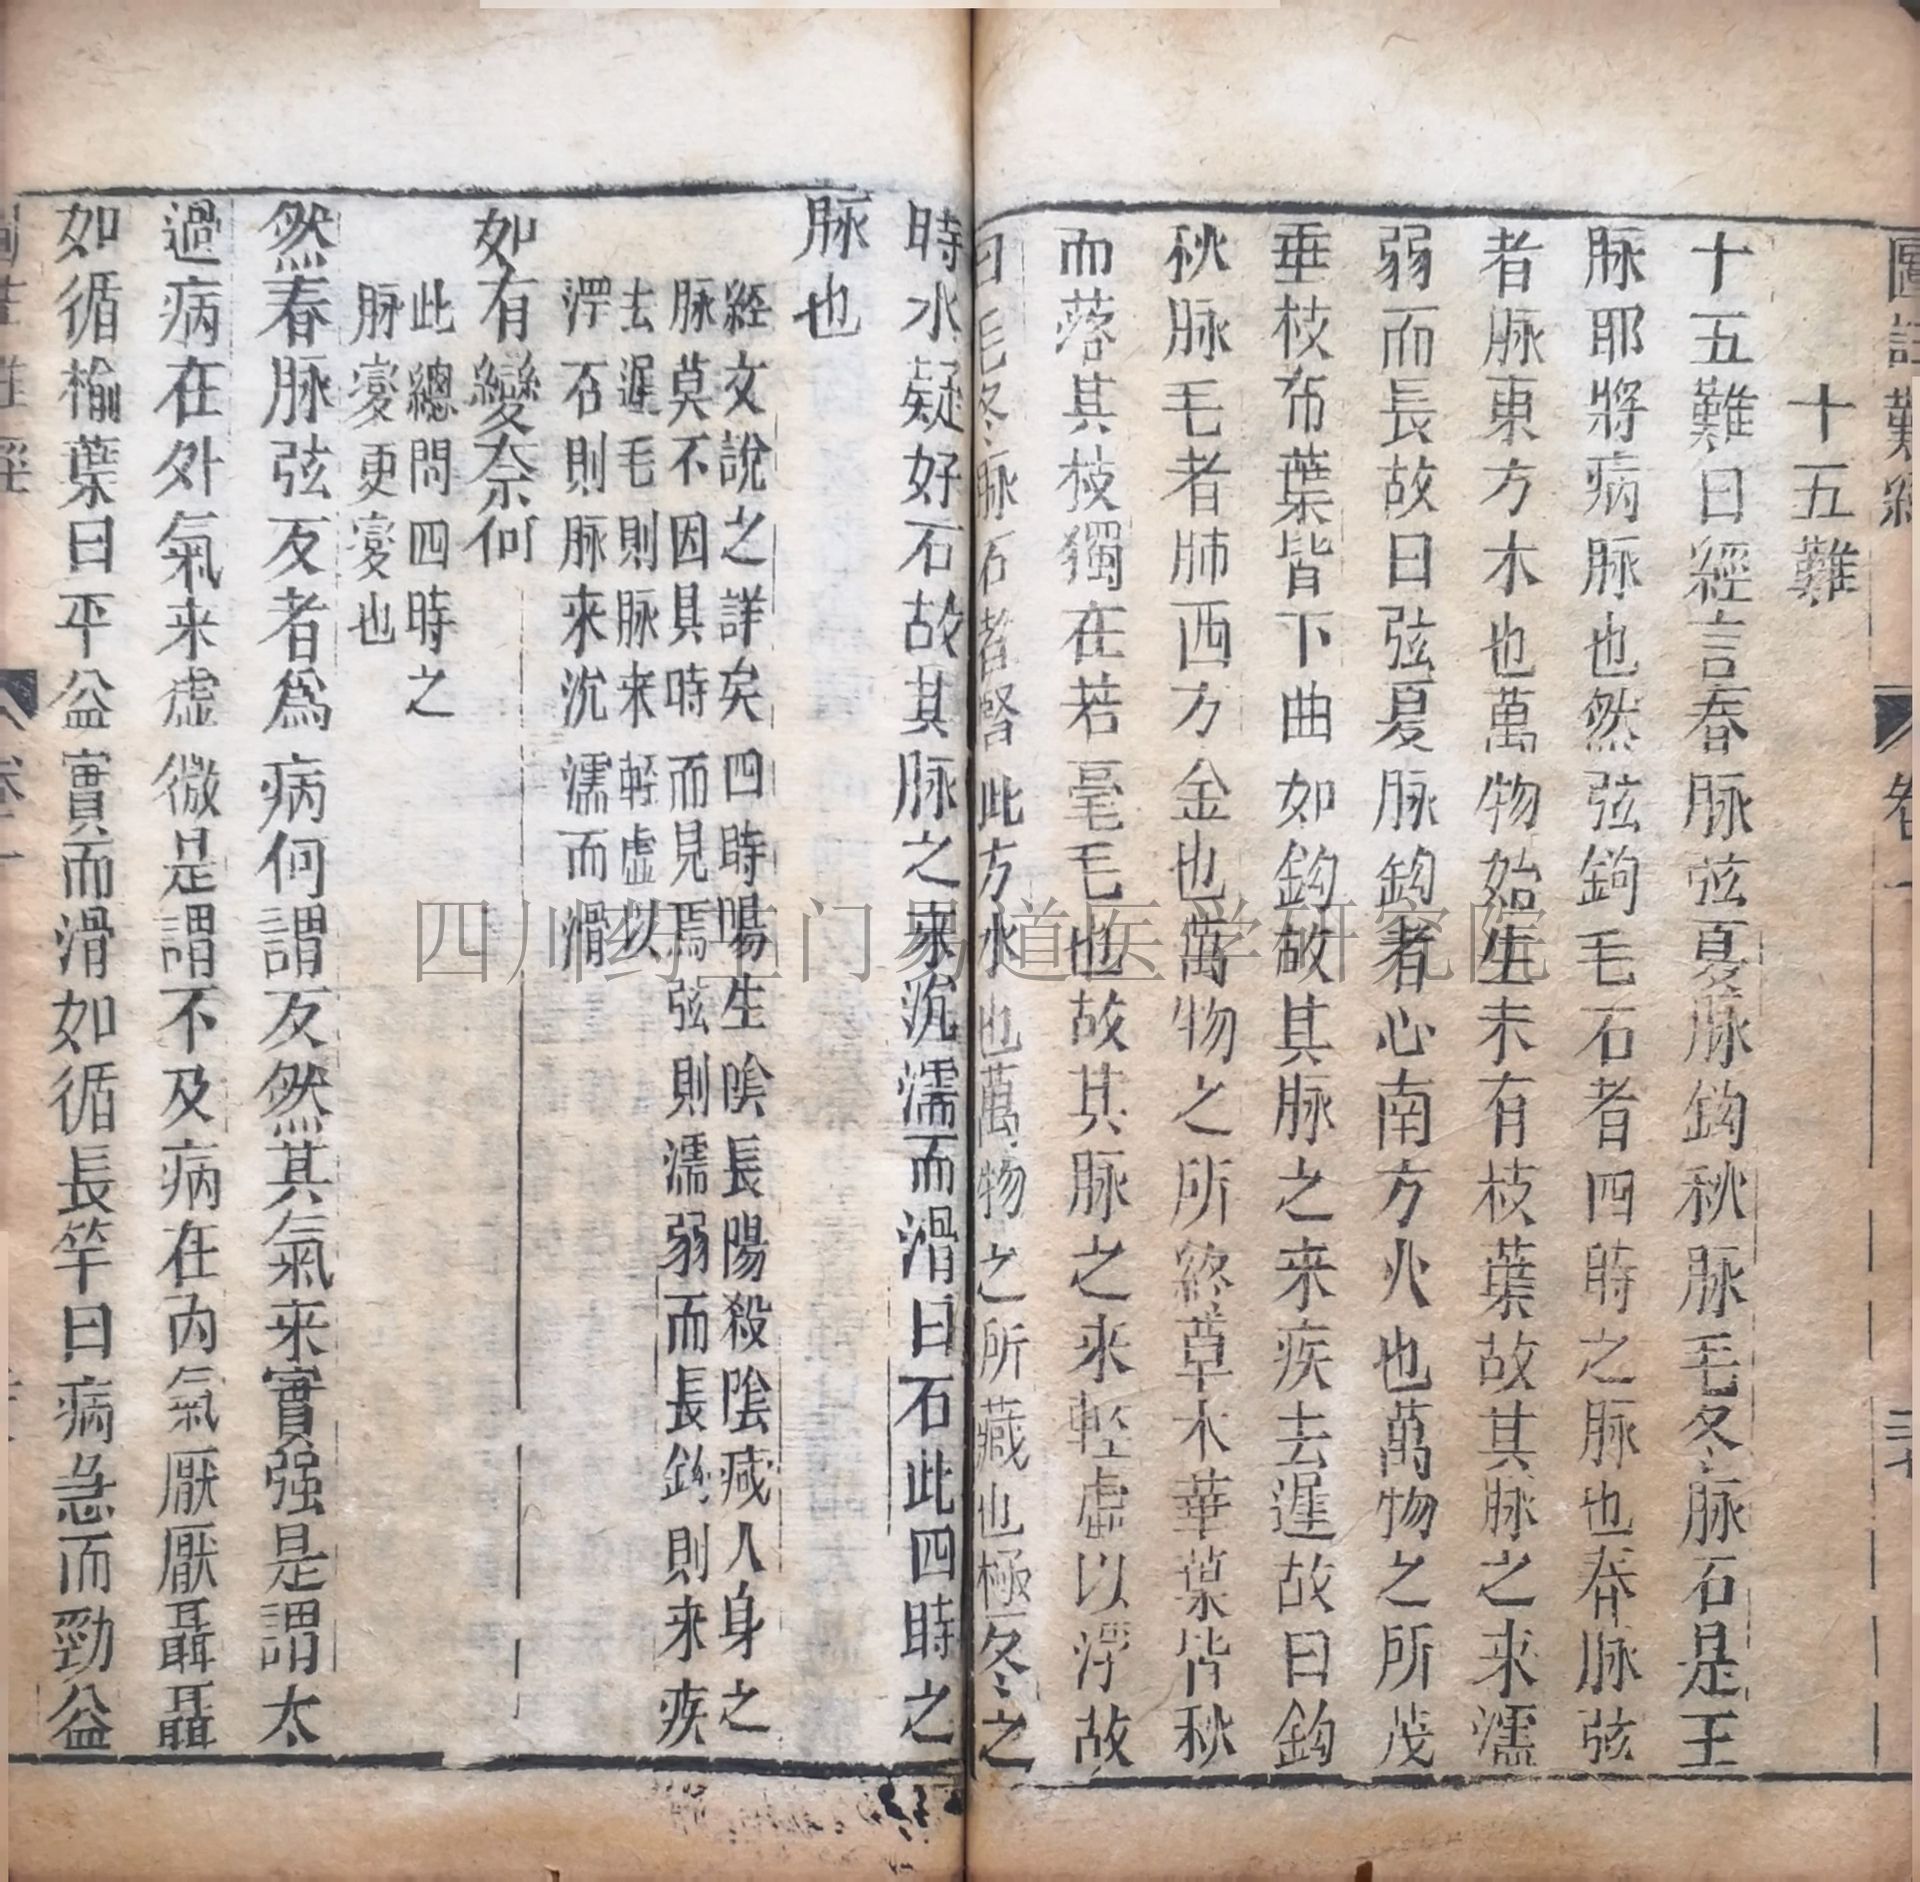 圖註難經
卷一
十五難
十五難曰經言春脉弦夏脉鈎秋脉毛冬脉石是王
脉耶將病脉也然弦鈎毛石者四時之脉也春脉弦
者脉東方木也萬物始生未有枝葉故其脉之来濡
弱而長故曰弦夏脉鈎者心南方火也萬物之所茂
垂枝布葉皆下曲如鈎故其脉之来疾去遲故曰鈎
秋脉毛者肺西方金也萬物之所終草木華葉皆秋
而落其枝獨在若毫毛也故其脉之来輕虚以浮故
曰毛冬脉石者腎北方水也萬物之所藏也極冬之
時水凝好石故其脉之来沉濡而滑曰石此四時之
脉也
經文說之詳矣四時陽生陰長陽殺陰藏人身之
脉莫不因其時而見焉弦則濡弱而長鈎則来疾
去遲毛則脉来輕虚以
浮石則脉来沉濡而滑
如有變奈何
此總問四時之
脉變更變也
然春脉弦反者為病何謂反然其氣来實强是謂太
過病在外氣来虚微是謂不及病在内氣厭厭聶聶
如循榆葉曰平益實而滑如循長竿曰病急而勁益
四川药王门易道医学研究院